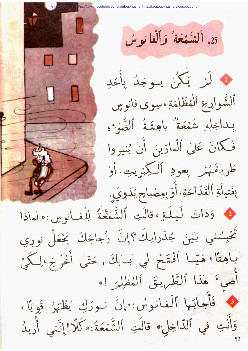 25. اَلشَّمْعَةُ وَٱلْفَانُوسُ
1 لَمْ يَكُنْ يُوجَدُ بِأَحَدِ
ٱلشَّوَارِعِ ٱلْمُظْلِمَةِ سِوَى فَانُوسٍ
بِدَاخِلِهِ شَمْعَةٌ بَاهِتَةُ ٱلضَّوْءِ،
فَكَانَ عَلَى ٱلْمَارِّينَ أَنْ يُنِيرُوا
طَرِيقَهُمْ بِعُودِ ٱلْكِبْرِيتِ، أَوْ
بِفَتِيلَةِ ٱلْقَدَّاحَةِ، أَوْ بِمِصْبَاحٍ يَدَوِيٍّ.
2 وَذَاتَ لَيْلَةٍ، قَالَتِ ٱلشَّمْعَةُ لِلْفَانُوسِ: «لِمَاذَا
تَحْبِسُنِي بَيْنَ جُدْرَانِكَ؟ إِنَّ زُجَاجَكَ يَجْعَلُ نُورِي
بَاهِتًا، هَيَّا ٱفْتَحْ لِي بَابَكَ، حَتَّى أَخْرُجَ، لِكَيْ
أُضِيءَ هَذَا ٱلطَّرِيقَ ٱلْمُظْلِمَ!»
3 فَأَجَابَهَا ٱلْفَانُوسُ: «إِنَّ نُورَكِ يَظْهَرُ قَوِيًّا،
وَأَنْتِ فِي ٱلدَّاخِلِ» قَالَتِ ٱلشَّمْعَةُ: «كَلَّا! إِنَّنِي أُرِيدُ